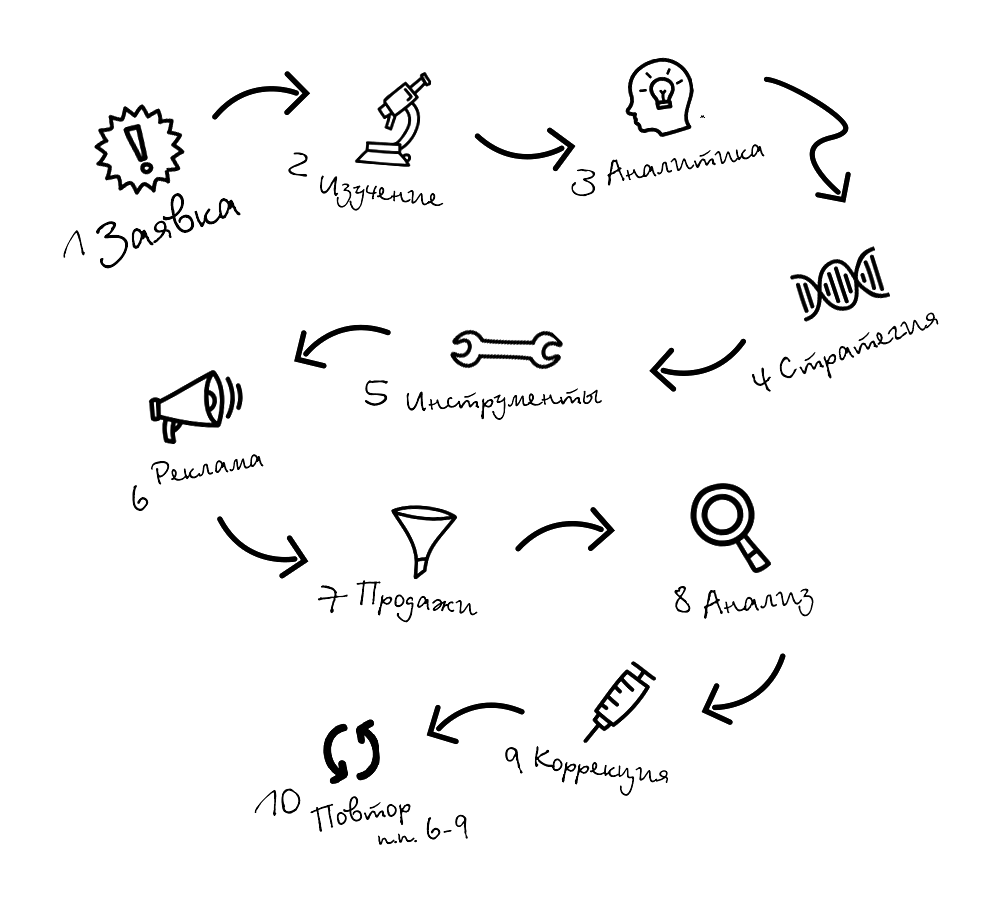 1 Заявка
2 Изучение
3 Аналитика
4 Стратегия
5 Инструменты
6 Реклама
7 Продажи
8 Анализ
9 Коррекция
10 Повтор
п.п. 6-9